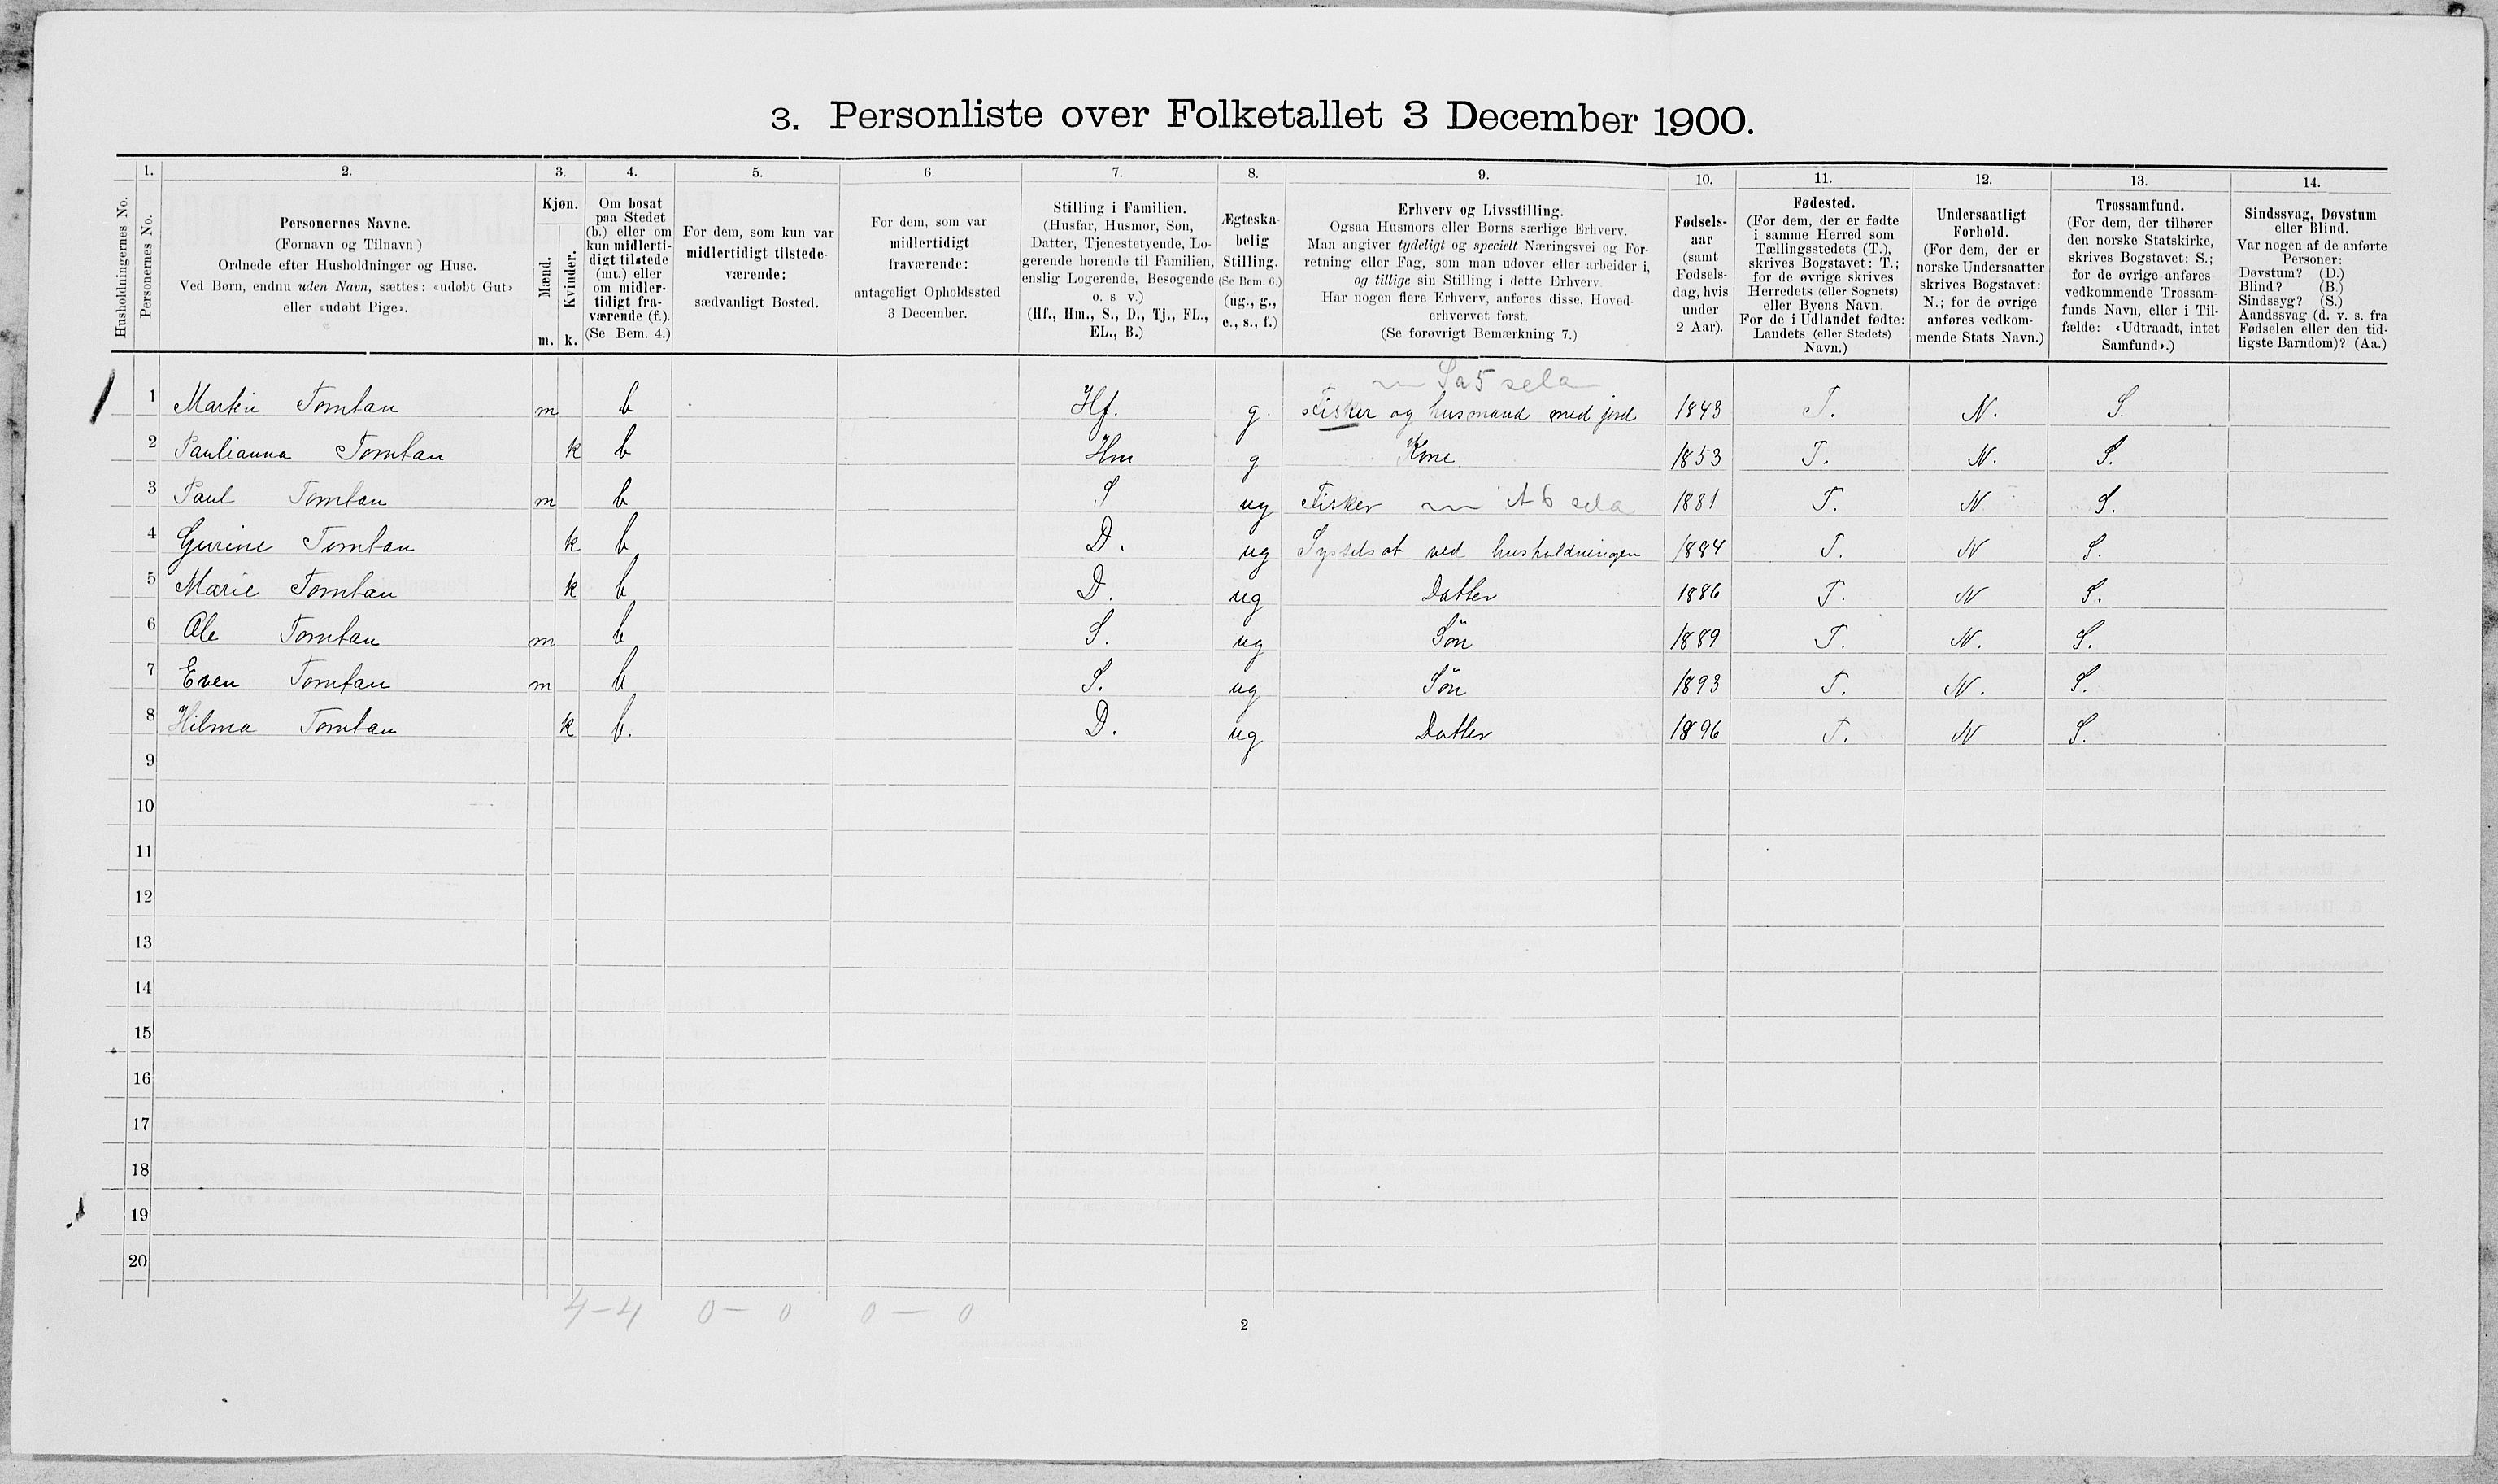 3. Personliste over Folketallet 3 December 1900.
Husholdningernes No.
1.
Personernes No.
2.
Personernes Navne.
(Fornavn og Tilnavn)
Ordnede efter Husholdninger og Huse.
Ved Børn, endnu uden Navn, sættes: «udøbt Gut»
eller «udøbt Pige».
3.
Kjøn.
Mænd.
Kvinder.
m. k.
4.
Om bosat
paa Stedet
(b.) eller om
kun midlerti-
digt tilstede
(mt.) eller
om midler-
tidigt fra-
værende (f.).
(Se Bem. 4.)
5.
For dem, som kun var
midlertidigt tilstede-
værende:
sædvanligt Bosted.
6.
For dem, som var
midlertidigt
fraværende:
antageligt Opholdssted
3 December.
7.
Stilling i Familien.
(Husfar, Husmor, Søn,
Datter, Tjenestetyende, Lo-
gerende hørende til Familien,
enslig Logerende, Besøgende
o. s v.)
(Hf., Hm., S., D., Tj., FL.,
EL., B.)
8.
Ægteska-
belig
Stilling.
(Se Bem. 6.)
(ug., g.,
e., s., f.)
9.
Erhverv og Livsstilling.
Ogsaa Husmors eller Børns særlige Erhverv.
Man angiver tydeligt og specielt Næringsvei og For-
retning eller Fag, som man udøver eller arbeider i,
og tillige sin Stilling i dette Erhverv
Har nogen flere Erhverv, anføres disse, Hoved-
erhvervet først.
(Se forøvrigt Bemærkning 7.)
10.
Fødsels-
aar
(samt
Fødsels-
dag, hvis
under
2 Aar).
11.
Fødested.
(For dem, der er fødte
i samme Herred som
Tællingsstedets (T.),
skrives Bogstavet: T.;
for de øvrige skrives
Herredets (eller Sognets)
eller Byens Navn.
For de i Udlandet fødte:
Landets (eller Stedets)
Navn.)
12.
Undersaatligt
Forhold.
(For dem, der er
norske Undersaatter
skrives Bogstavet:
N.; for de øvrige
anføres vedkom-
mende Stats Navn.)
13.
Trossamfund.
(For dem, der tilhører
den norske Statskirke,
skrives Bogstavet: S.;
for de øvrige anføres
vedkommende Trossam-
funds Navn, eller i Til-
fælde: «Udtraadt, intet
Samfund».)
14.
Sindssvag, Døvstum
eller Blind.
Var nogen af de anførte
Personer:
Døvstum? (D.)
Blind? (B.)
Sindssyg? (S.)
Aandssvag (d. v. s. fra
Fødselen eller den tid-
ligste Barndom)? (Aa.)
1 Martin Tomtan m b Hf. g. Fisker og husmand med jord 1843 T. N. S.
2 Paulianna Tomtan k b Hm g Kone 1853 T. N. S.
3 Paul Tomtan m b S ug Fisker 1881 T. N S.
4 Gurine Tomtan k b D. ug Sysselsat ved husholdningen 1884 T. N S.
5 Marie Tomtan k b D. ug Datter 1886 T. N S.
6 Ole Tomtan m b S. ug Søn 1889 T. N. S.
7 Even Tomtan m b S. ug Søn 1893 T. N. S.
8 Hilma Tomtan k b. D. ug Datter 1896 T. N S.
9
10
11
12
13
14
15
16
17
18
19
20
4-4 0-0 0-0
2